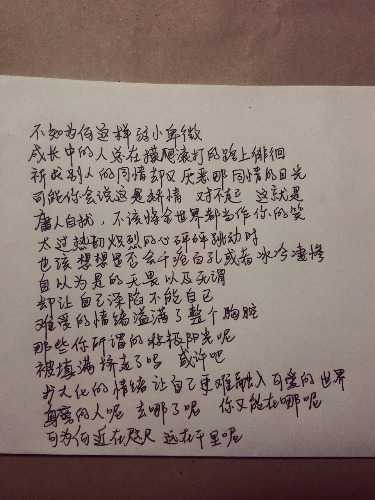 不知为何这样弱小卑微
成长中的人总在摸爬滚打的路上徘徊
祈求别人的同情却又厌恶那同情的目光
可能你会说这是矫情 对不起 这就是
庸人自扰,不该将全世界都当作你的笑
太过热切炽烈的心砰砰跳动时
也该想想是否会千疮百孔或者冰冷凄惨
自以为是的无畏以及无谓
却让自己深陷不能自已
难受的情绪溢满了整个胸腔
那些你所谓的积极阳光呢
被填满挤走了吗 或许吧
扩大化的情绪让自己更难融入可爱的世界
真爱的人呢 去哪了呢 你又能在哪呢
可为何近在咫尺 远在千里呢